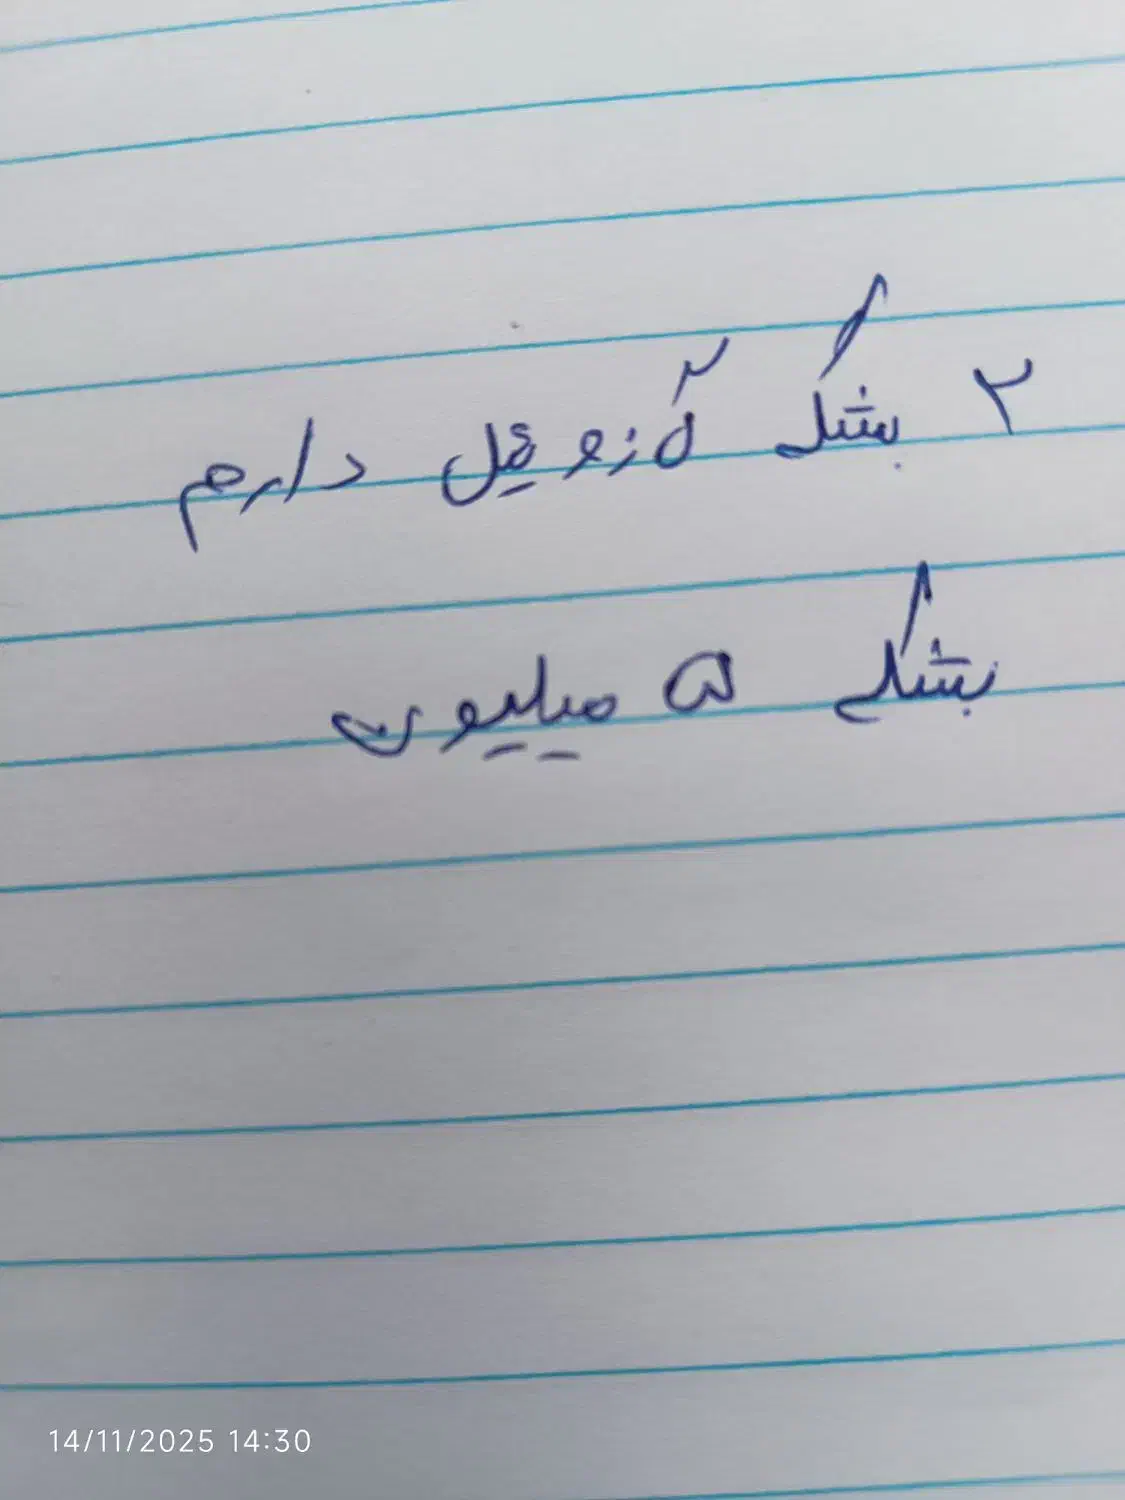 ۲ بشگه گازوئیل دارم
بشگه ۵ میلیون
14/11/2025 14:30